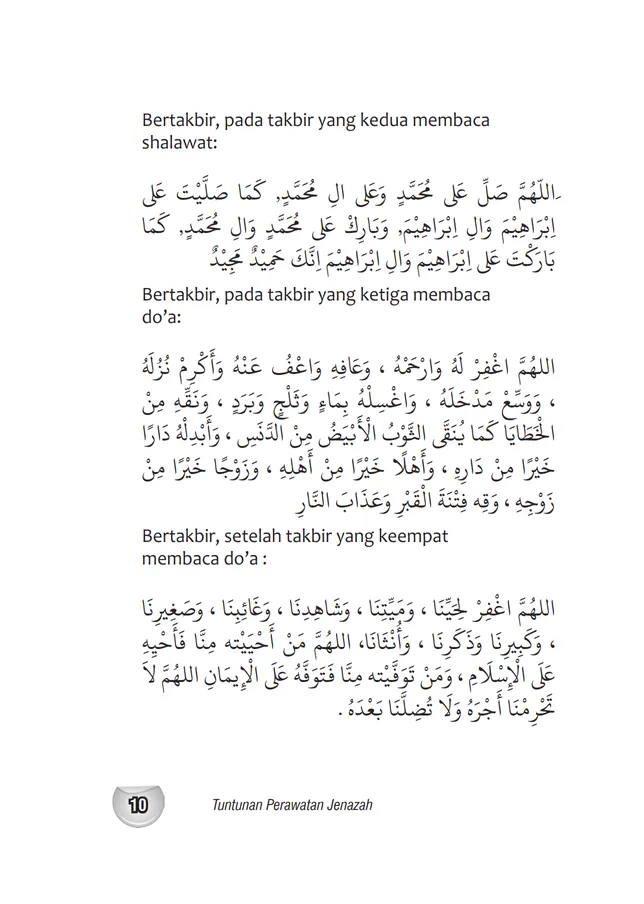 Bertakbir, pada takbir yang kedua membaca
shalawat:
اللّهُمَّ صَلِّ عَلى مُحَمَّدٍ وَعَلى الِ مُحَمَّدٍ, كَمَا صَلَّيْتَ عَلى
اِبْرَاهِيْمَ وَالِ اِبْرَاهِيْمَ, وَبَارِكْ عَلى مُحَمَّدٍ وَالِ مُحَمَّدٍ, كَمَا
بَارَكْتَ عَلى اِبْرَاهِيْمَ وَالِ اِبْرَاهِيْمَ اِنَّكَ حَمِيْدٌ مَجِيْدٌ
Bertakbir, pada takbir yang ketiga membaca
do’a:
اللهُمَّ اغْفِرْ لَهُ وَارْحَمْهُ ، وَعَافِهِ وَاعْفُ عَنْهُ وَأَكْرِمْ نُزُلَهُ
، وَوَسِّعْ مَدْخَلَهُ ، وَاغْسِلْهُ بِمَاءٍ وَثَلْجٍ وَبَرَدٍ ، وَنَقِّهِ مِنْ
الْخَطَايَا كَمَا يُنَقَّى الثَّوْبُ الْأَبْيَضُ مِنْ الدَّنَسِ ، وَأَبْدِلْهُ دَارًا
خَيْرًا مِنْ دَارِهِ ، وَأَهْلًا خَيْرًا مِنْ أَهْلِهِ ، وَزَوْجًا خَيْرًا مِنْ
زَوْجِهِ ، وَقِه فِتْنَةَ الْقَبْرِ وَعَذَابَ النَّارِ
Bertakbir, setelah takbir yang keempat
membaca do’a :
اللهُمَّ اغْفِرْ لِحَيِّنَا ، وَمَيِّتِنَا ، وَشَاهِدِنَا ، وَغَائِبِنَا ، وَصَغِيرِنَا
، وَكَبِيرِنَا وَذَكَرِنَا ، وَأُنْثَانَا، اللهُمَّ مَنْ أَحْيَيْته مِنَّا فَأَحْيِهِ
عَلَى الْإِسْلَامِ ، وَمَنْ تَوَفَّيْته مِنَّا فَتَوَفَّهُ عَلَى الْإِيمَانِ اللهُمَّ لاَ
تَحْرِمْنَا أَجْرَهُ وَلَا تُضِلَّنَا بَعْدَهُ .
10 Tuntunan Perawatan Jenazah